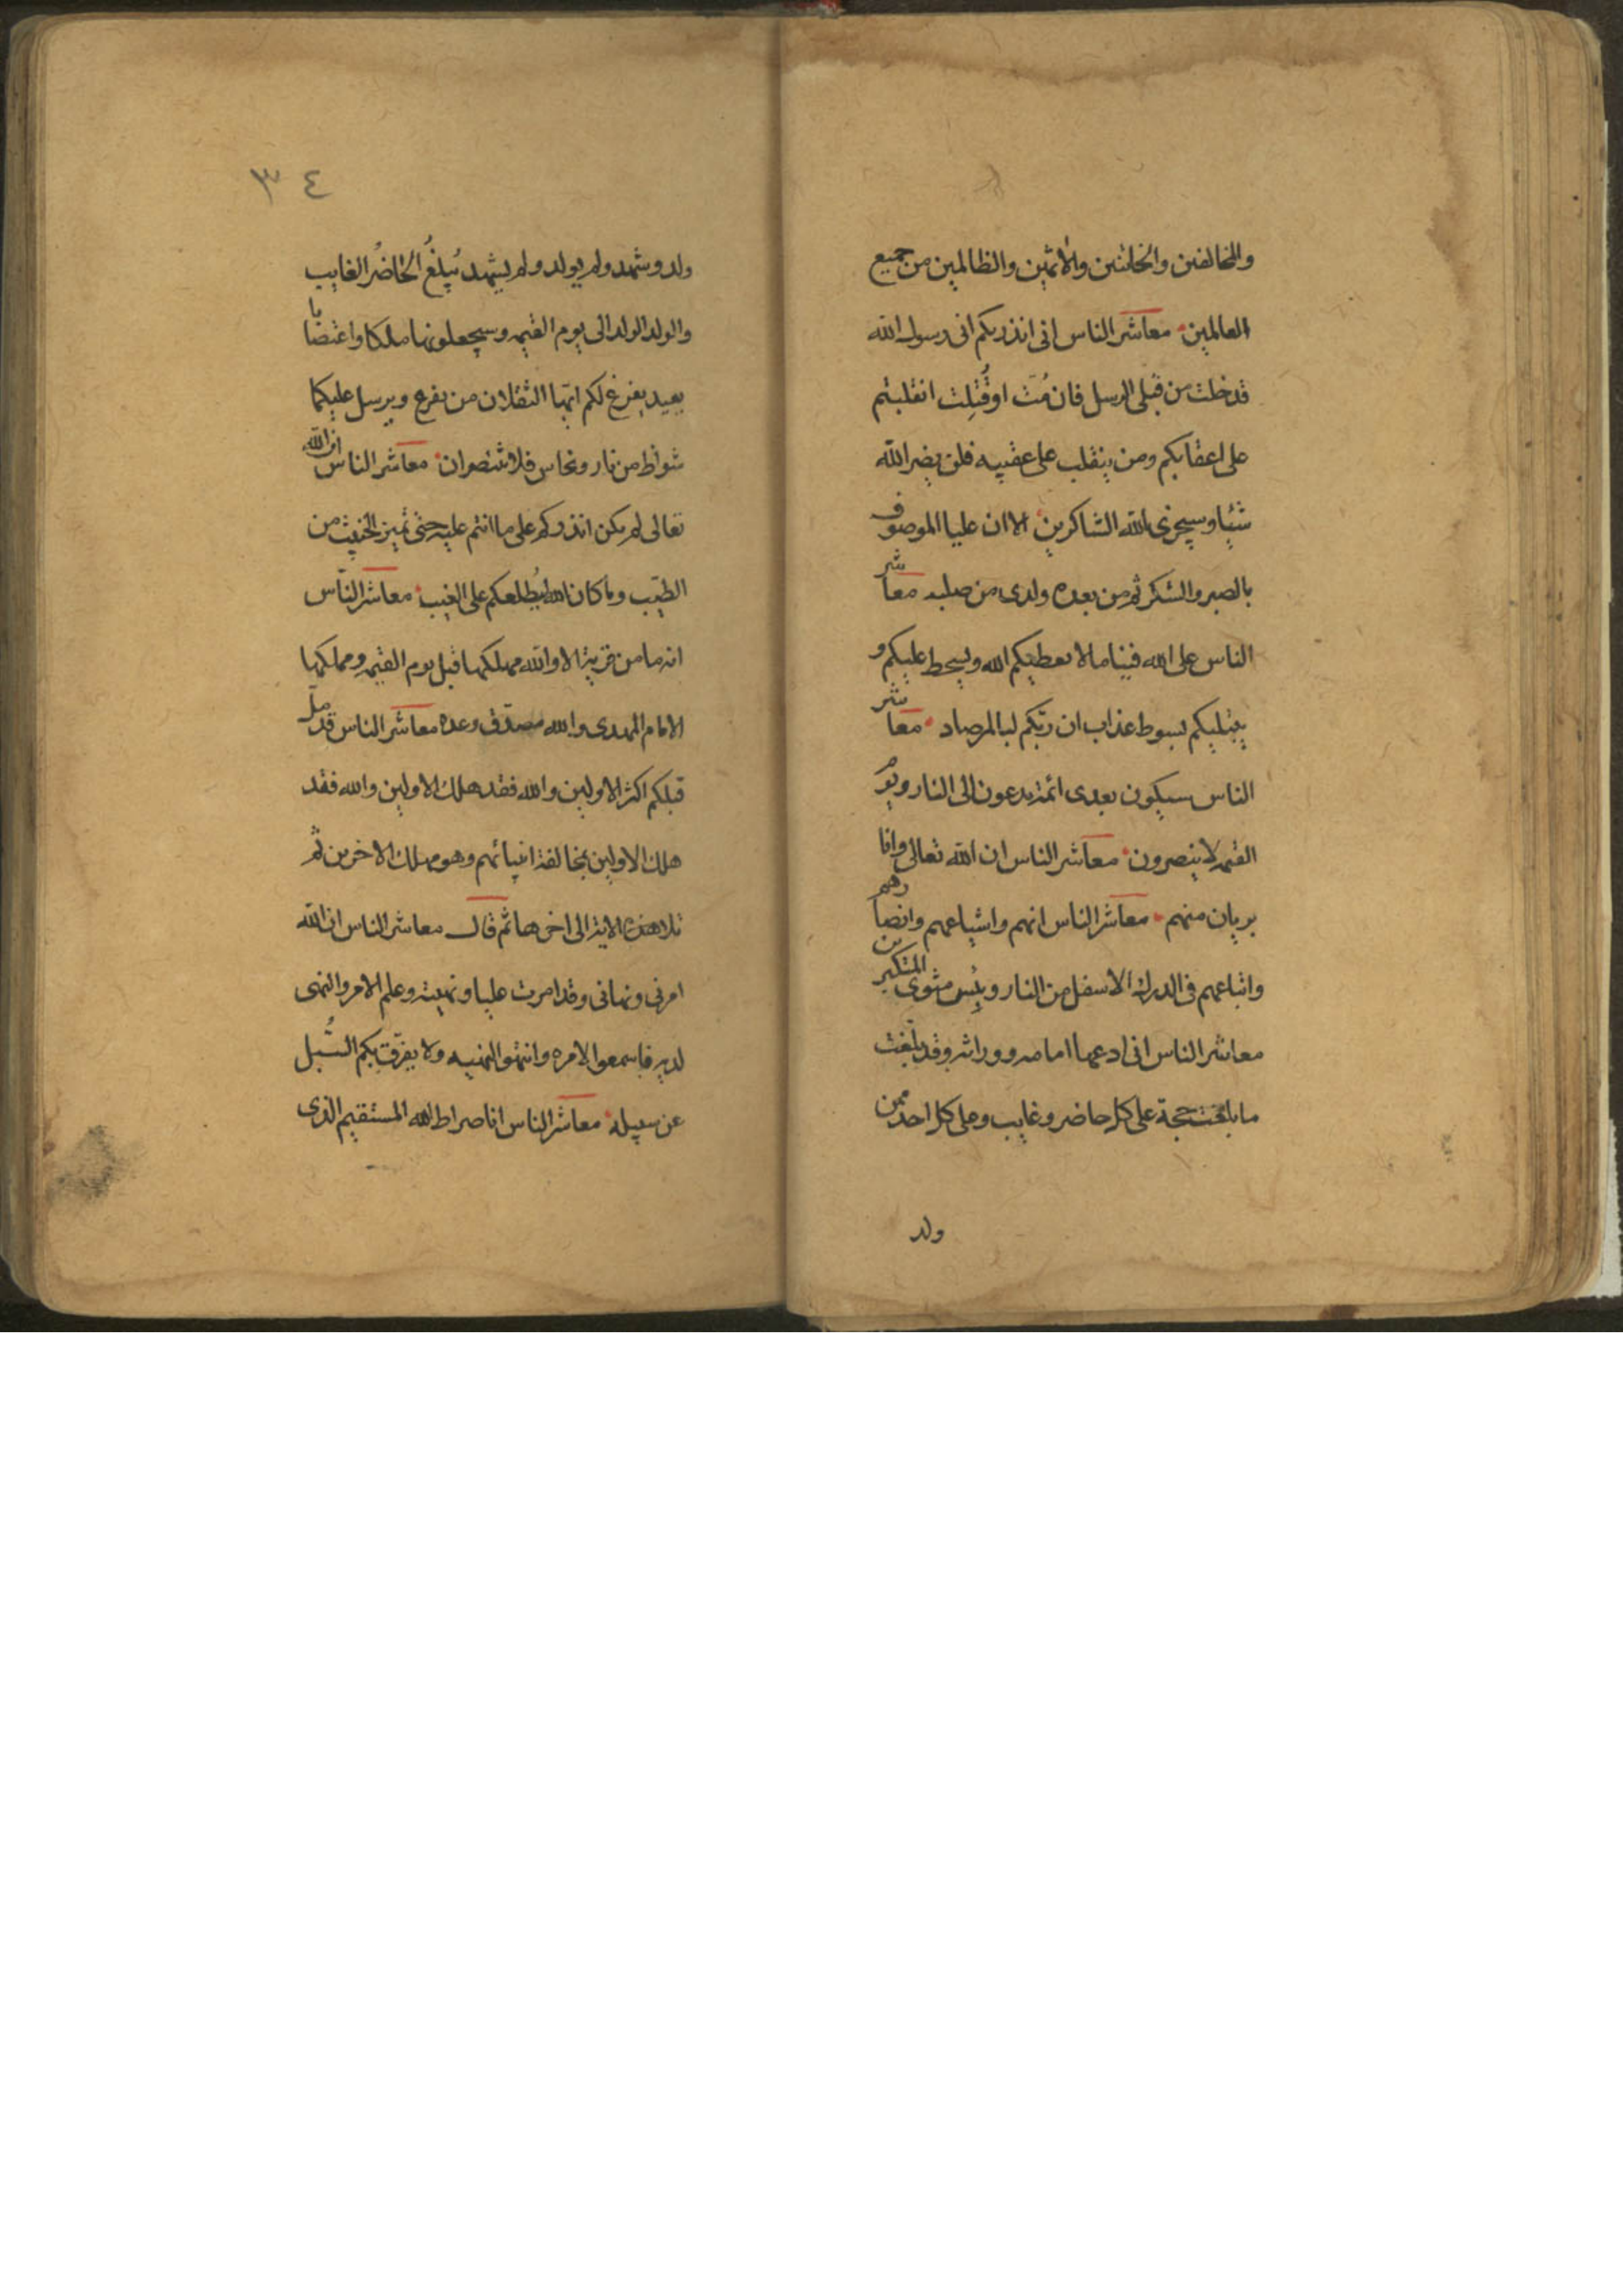 والمخالفين والخائنين والاثمين والظالمين من جميع
العالمين معاشر الناس انى انذركم انى رسول الله
قد خلت من قبلى الرسل فان مُتّ او قُتِلت انقلبتم
على اعقابكم ومن ينقلب على عقبيه فلن يضر الله
شيئا وسيجزى الله الشاكرين الا ان عليا الموصوف
بالصبر والشكر ثم من بعده ولدى من صلبه معاشر
الناس على الله فينا مالا يعطيكم الله ويسخط عليكم و
يبتليكم بسوط عذاب ان ربّكم لبالمرصاد معاشر
الناس سيكون بعدى ائمة يدعون الى النار ويوم
القيمه لا ينصرون معاشر الناس ان الله تعالى وانا
بريان منهم معاشر الناس انهم واشياعهم وانصارهم
واتباعهم فى الدرك الاسفل من النار وبئس مثوى المتكبرين
معاشر الناس انى ادعها امامه ووراثه وقد بلّغت
ما بلغت حجة على كل حاضر وغايب وعلى كل احد ممن
ولد
٣٤
ولد وشهد ولم يولد ولم يشهد يُبلغُ الحاضرُ الغايب
والولد الولد الى يوم القيمه وسيجعلونها ملكا واغتصابا
يعيد يفرغ لكم ايّها الثقلان من يفرغ ويرسل عليكما
شواظ من نار ونحاس فلا تنتصران معاشر الناس ان الله
تعالى لم يكن انذركم على ما انتم عليه حتى تميز الخبيث من
الطيّب وما كان الله ليُطلعكم على الغيب معاشر النّاس
انه ما من قرية الا والله مهلكها قبل يوم القيمه ومملكها
الامام المهدى والله مصدّق وعده معاشر الناس قد ضلّ
قبلكم اكثر الاولين والله فقد هلك الاولين والله فقد
هلك الاولين بمخالفة انبيائهم وهو مهلك الاخرين ثم
تلا هذه الاية الى اخرها ثم قال معاشر الناس ان الله
امرنى ونهانى وقد امرت عليا ونهيته وعلم الامر والنهى
لديه فاسمعوا لامره وانتهوا لنهيه ولا يفرّق بكم السُّبل
عن سبيله معاشر الناس انا صراط الله المستقيم الذى